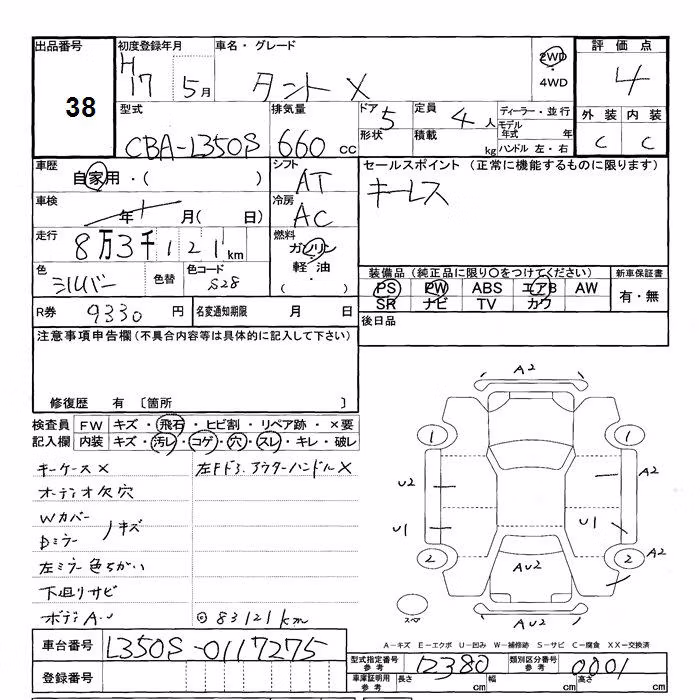 出品番号
38
初度登録年月
H
17 5月
車名・グレード
タント X
2WD
・
4WD
評価点
4
型式
CBA-L350S
排気量
660 cc
ドア 5
形状
定員 4 人
積載 kg
ディーラー・並行
モデル
年式 年
ハンドル 左・右
外装 内装
C C
車歴
自家用・( )
シフト
AT
車検
年 月( 日)
冷房
AC
走行
8万3千121km
燃料
ガソリン
・
軽油
・
( )
色
シルバー
色替
色コード
S28
R券 9330 円
名変通知期限 月 日
セールスポイント (正常に機能するものに限ります)
キーレス
装備品(純正品に限り○をつけてください)
新車保証書
PS PW ABS エアB AW
SR ナビ TV カワ
有・無
後日品
注意事項申告欄(不具合内容等は具体的に記入して下さい)
修復歴 有 〔箇所 〕
検査員 FW キズ・飛石・ヒビ割・リペア跡・×要
記入欄 内装 キズ・汚レ・コゲ・穴・スレ・キレ・破レ
キーケース X
左Fドう.アウターハンドル X
オーディオ欠穴
Wカバー
Dミラー
キズ
左ミラー色ちがい
下廻りサビ
ボディ A.U
◎83121km
A2
1 1
U2 A2
U1 U1
2 2 A2
AU2
スペア
AU2
A-キズ E-エクボ U-凹み W-補修跡 S-サビ C-腐食 XX-交換済
車台番号 L350S-0117275
登録番号
型式指定番号
参考
12380
類別区分番号
参考
0001
車庫証明用
参考
長さ cm 幅 cm 高さ cm